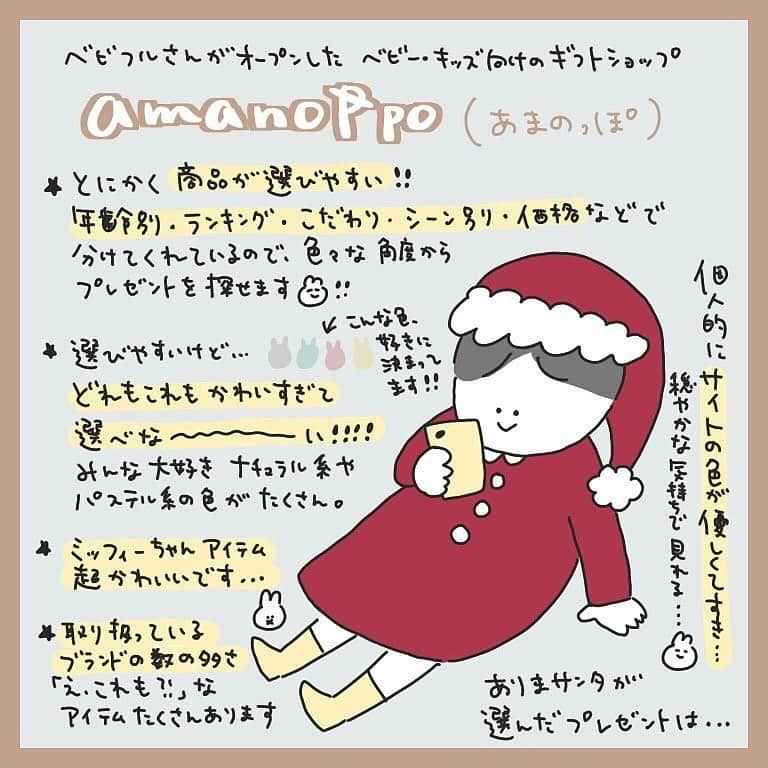 ベビフルさんがオープンした ベビー・キッズ向けのギフトショップ
amanoppo (あまのっぽ)
★ とにかく 商品が選びやすい!!
年齢別・ランキング・こだわり・シーン別・価格などで
分けてくれているので、色々な角度から
プレゼントを探せます!!
★ 選びやすいけど...
↙ こんな色、
好きに
決まって
ます!!
どれもこれも かわいすぎて
選べな〜〜〜い!!!!
みんな大好き ナチュラル系や
パステル系の色がたくさん。
★ ミッフィーちゃんアイテム
超かわいいです...
★ 取り扱っている
ブランドの数の多さ
「え、これも?!」な
アイテムたくさんあります
個人的にサイトの色が優しくてすき...
穏やかな気持ちで見れる...
ありまサンタが
選んだプレゼントは...